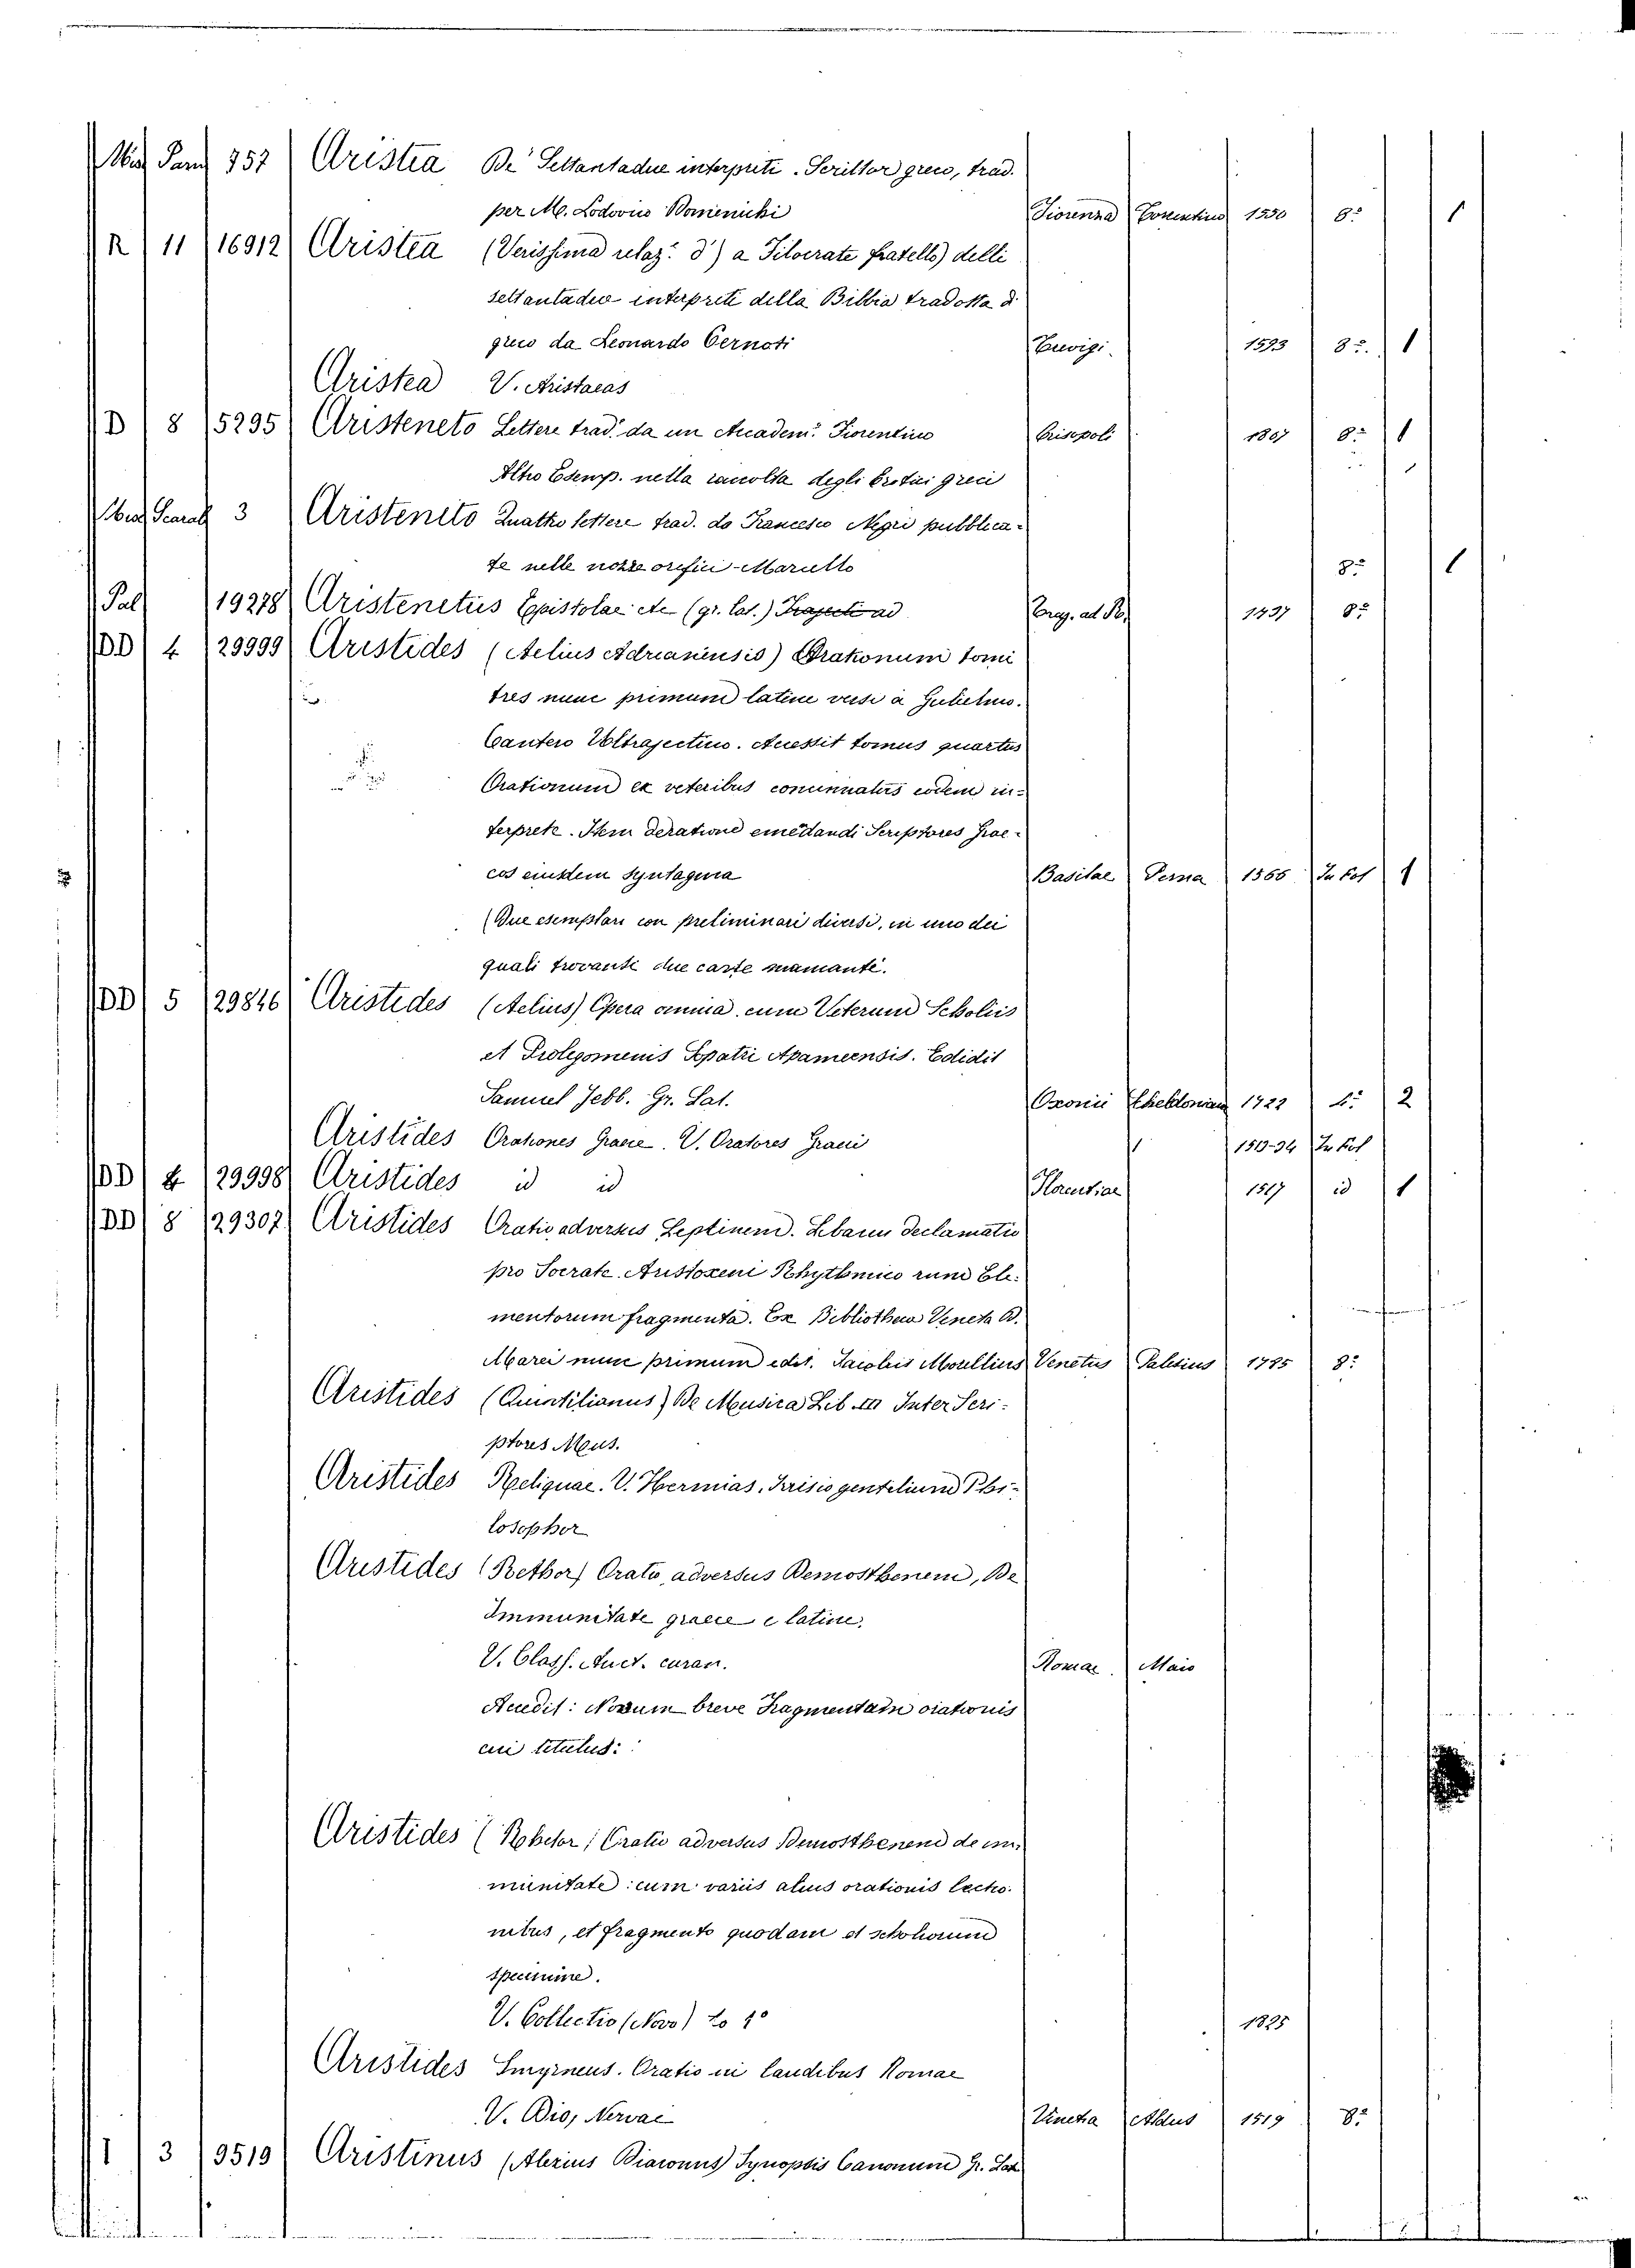 957 Aristea De' Settantadue interpreti. Scrittor greco, trad.
per M. Lodovico Domenichi Fiorenza Torrentino 1550 8°
1
R 11 16912 Aristea (Verissima relaz.e d') a Filocrate fratello delli
settantadue interpreti della Bibbia tradotta d
greco da Leonardo Cernoti 1593 8°. 1
Aristea V. Aristaeas
D 8 5295 Aristeneto Lettere trad. da un Academ.° Fiorentino Crisopoli 1807 8° 1
Altro Esemp. nella raccolta degli Erotici greci
3 Aristeneto Quattro lettere trad. da Francesco Negri pubblica-
te nelle nozze Marutto 8° 1
Pal 19278 Aristenetus Epistolae etc (gr. lat.) Trajecti ad 1737 8°
DD 4 29999 Aristides (Aelius Adrianensis) Orationum tomi
tres nunc primum latine versi a Gulielmo
Cantero Ultrajectino. Accessit tomus quartus
Orationum ex veteribus concinnatus eodem in-
terprete. Item de ratione emendandi Scriptores Grae-
cos eiusdem Syntagma Basilae Perna 1566 In fol 1
(Due esemplari con preliminari diversi, in uno dei
quali trovansi due carte mancanti.
DD 5 29846 Aristides (Aelius) Opera omnia cum Veterum Scholiis
et Prolegomenis Sopatri Apameensis. Edidit
Samuel Jebb. Gr. Lat. Oxonii Sheldonian 1722 4° 2
Aristides Orationes Graece. V. Oratores Graeci 1513-34 In fol
DD 4 29998 Aristides id id Florentiae 1517 id 1
DD 8 29307 Aristides Oratio adversus Leptinem. Libanii declamatio
pro Socrate. Aristoxeni Rhythmico rum Ele-
mentorum fragmenta. Ex Bibliotheca Veneta D.
Marci nunc primum edit. Jacobus Morellius Venetiis Palesius 1785 8°
Aristides (Quintilianus) De Musica Lib III Inter Scri-
ptores Mus.
Aristides Reliquae. V. Hermias, Irrisio gentilium Phi-
losophor
Aristides (Rethor) Oratio adversus Demosthenem, De
Immunitate graece e latine,
V. Class. Auct. curan. Romae. Maio
Accedit: Novum breve Fragmentum orationis
cui titulus:
Aristides (Rhetor) Oratio adversus Demosthenem de im-
munitate: cum variis alius orationis lectio-
nibus, et fragmento quodam et scholiorum
specimine.
V. Collectio (Nova) to 1° 1825
Aristides Smyrneus. Oratio in laudibus Romae
V. Dio, Nervae Venetia Aldus 1519 8°
I 3 9519 Aristinus (Alexius Diaconus) Synopsis Canonum Gr. Lat